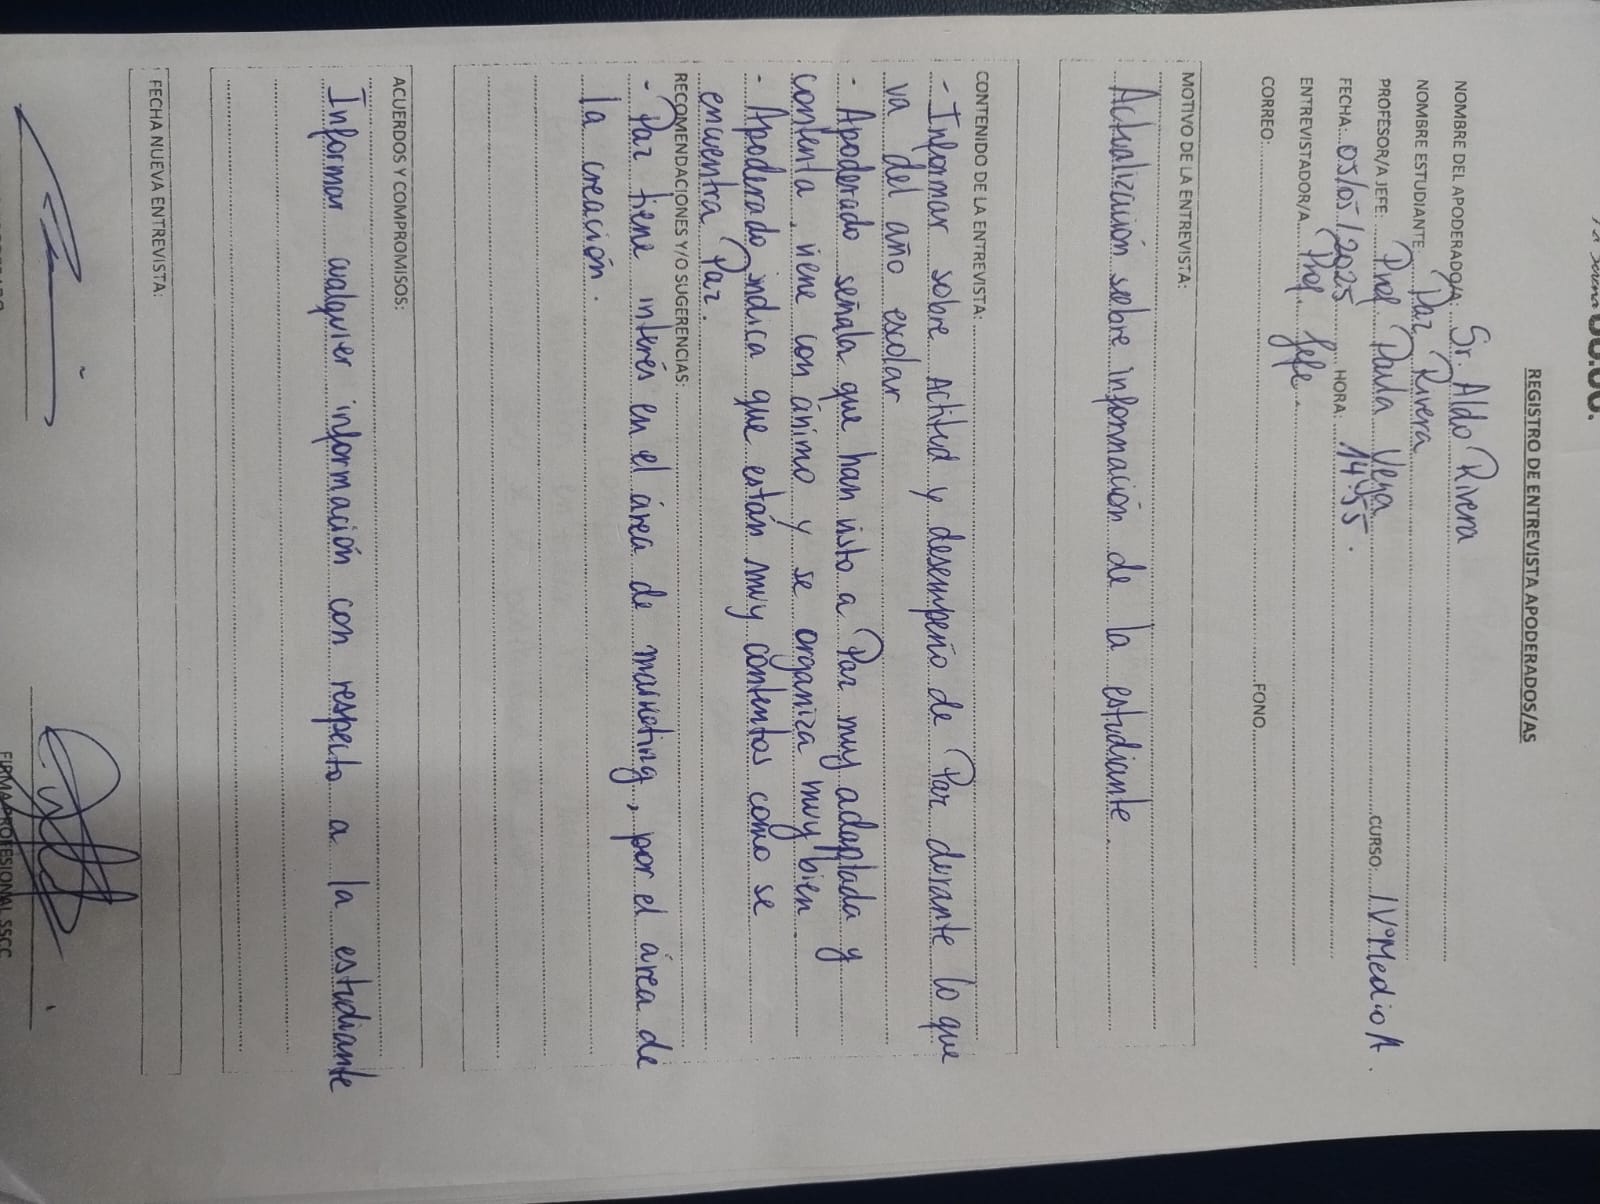 SS.CC.
REGISTRO DE ENTREVISTA APODERADOS/AS
NOMBRE DEL APODERADO/A: Sr. Aldo Rivera
NOMBRE ESTUDIANTE: Paz Rivera
PROFESOR/A JEFE: Prof Paula Vega CURSO: IVº Medio A.
FECHA: 05/05/2025 HORA: 14:55.
ENTREVISTADOR/A Prof Jefe.
CORREO: FONO
MOTIVO DE LA ENTREVISTA:
Actualización sobre información de la estudiante.
CONTENIDO DE LA ENTREVISTA:
- Informar sobre Actitud y desempeño de Paz durante lo que
va del año escolar
- Apoderado señala que han visto a Paz muy adaptada y
contenta, viene con ánimo y se organiza muy bien
- Apoderado indica que están muy contentos como se
encuentra Paz.
RECOMENDACIONES Y/O SUGERENCIAS:
- Paz tiene interés en el área de marketing, por el área de
la creación.
ACUERDOS Y COMPROMISOS:
Informar cualquier información con respecto a la estudiante
FECHA NUEVA ENTREVISTA:
FIRMA PROFESIONAL SSCC